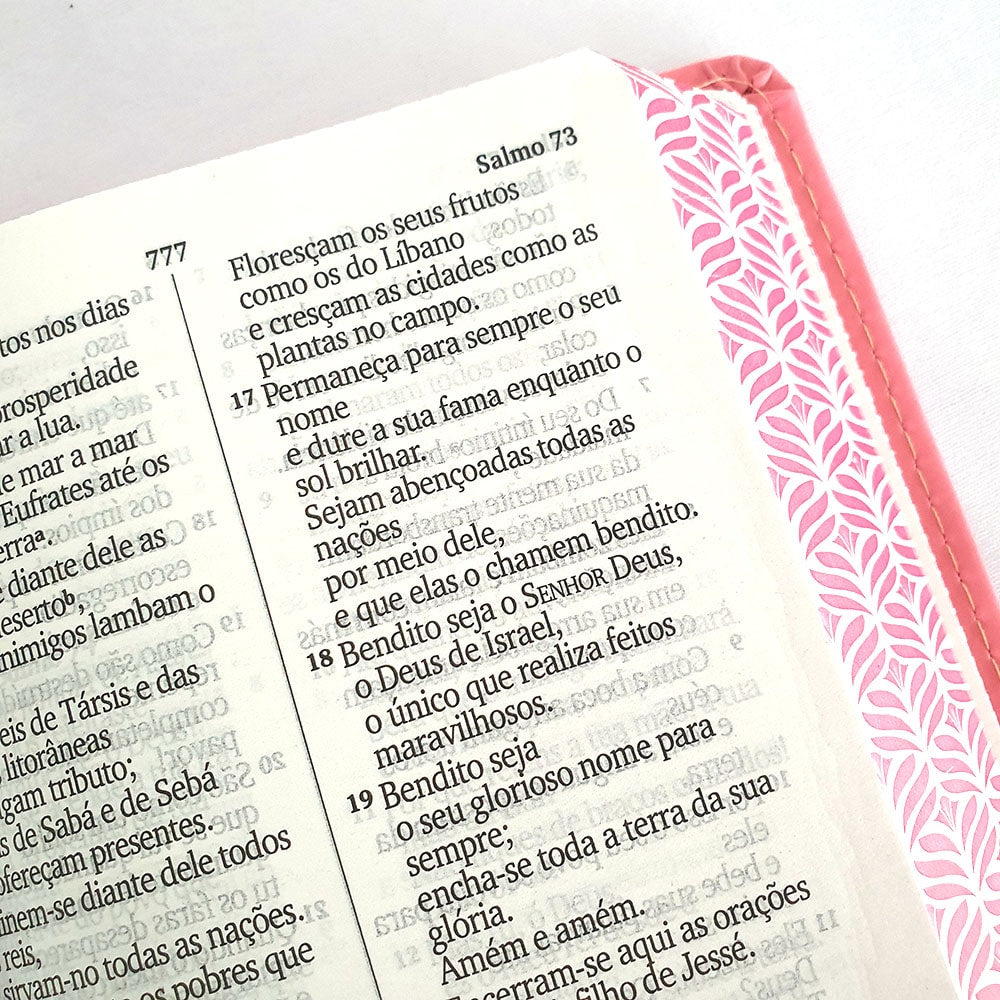 777
Salmo 73
tos nos dias
prosperidade
ar a lua.
e mar a mar
Eufrates até os
erraᵃ.
diante dele as
esertoᵇ,
inimigos lambam o
eis de Társis e das
litorâneas
agam tributo;
s de Sabá e de Sebá
ofereçam presentes.
inem-se diante dele todos
reis,
sirvam-no todas as nações.
os pobres que
Floresçam os seus frutos
como os do Líbano
e cresçam as cidades como as
plantas no campo.
17 Permaneça para sempre o seu
nome
e dure a sua fama enquanto o
sol brilhar.
Sejam abençoadas todas as
nações
por meio dele,
e que elas o chamem bendito.
18 Bendito seja o SENHOR Deus,
o Deus de Israel,
o único que realiza feitos
maravilhosos.
19 Bendito seja
o seu glorioso nome para
sempre;
encha-se toda a terra da sua
glória.
Amém e amém.
Encerram-se aqui as orações
filho de Jessé.